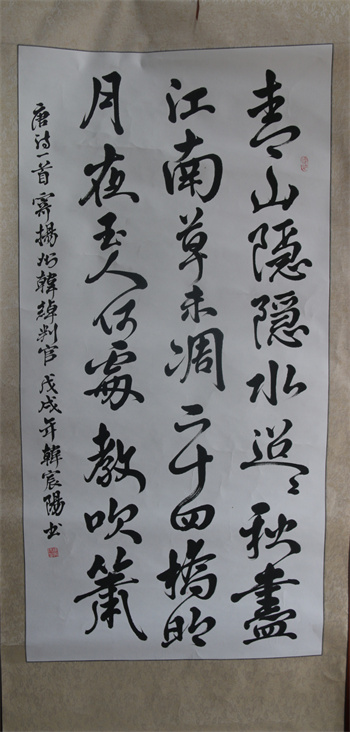 青山隱隱水迢迢秋盡
江南草未凋二十四橋明
月夜玉人何處教吹簫
唐詩一首寄揚州韓綽判官戊戌年韓宸陽書